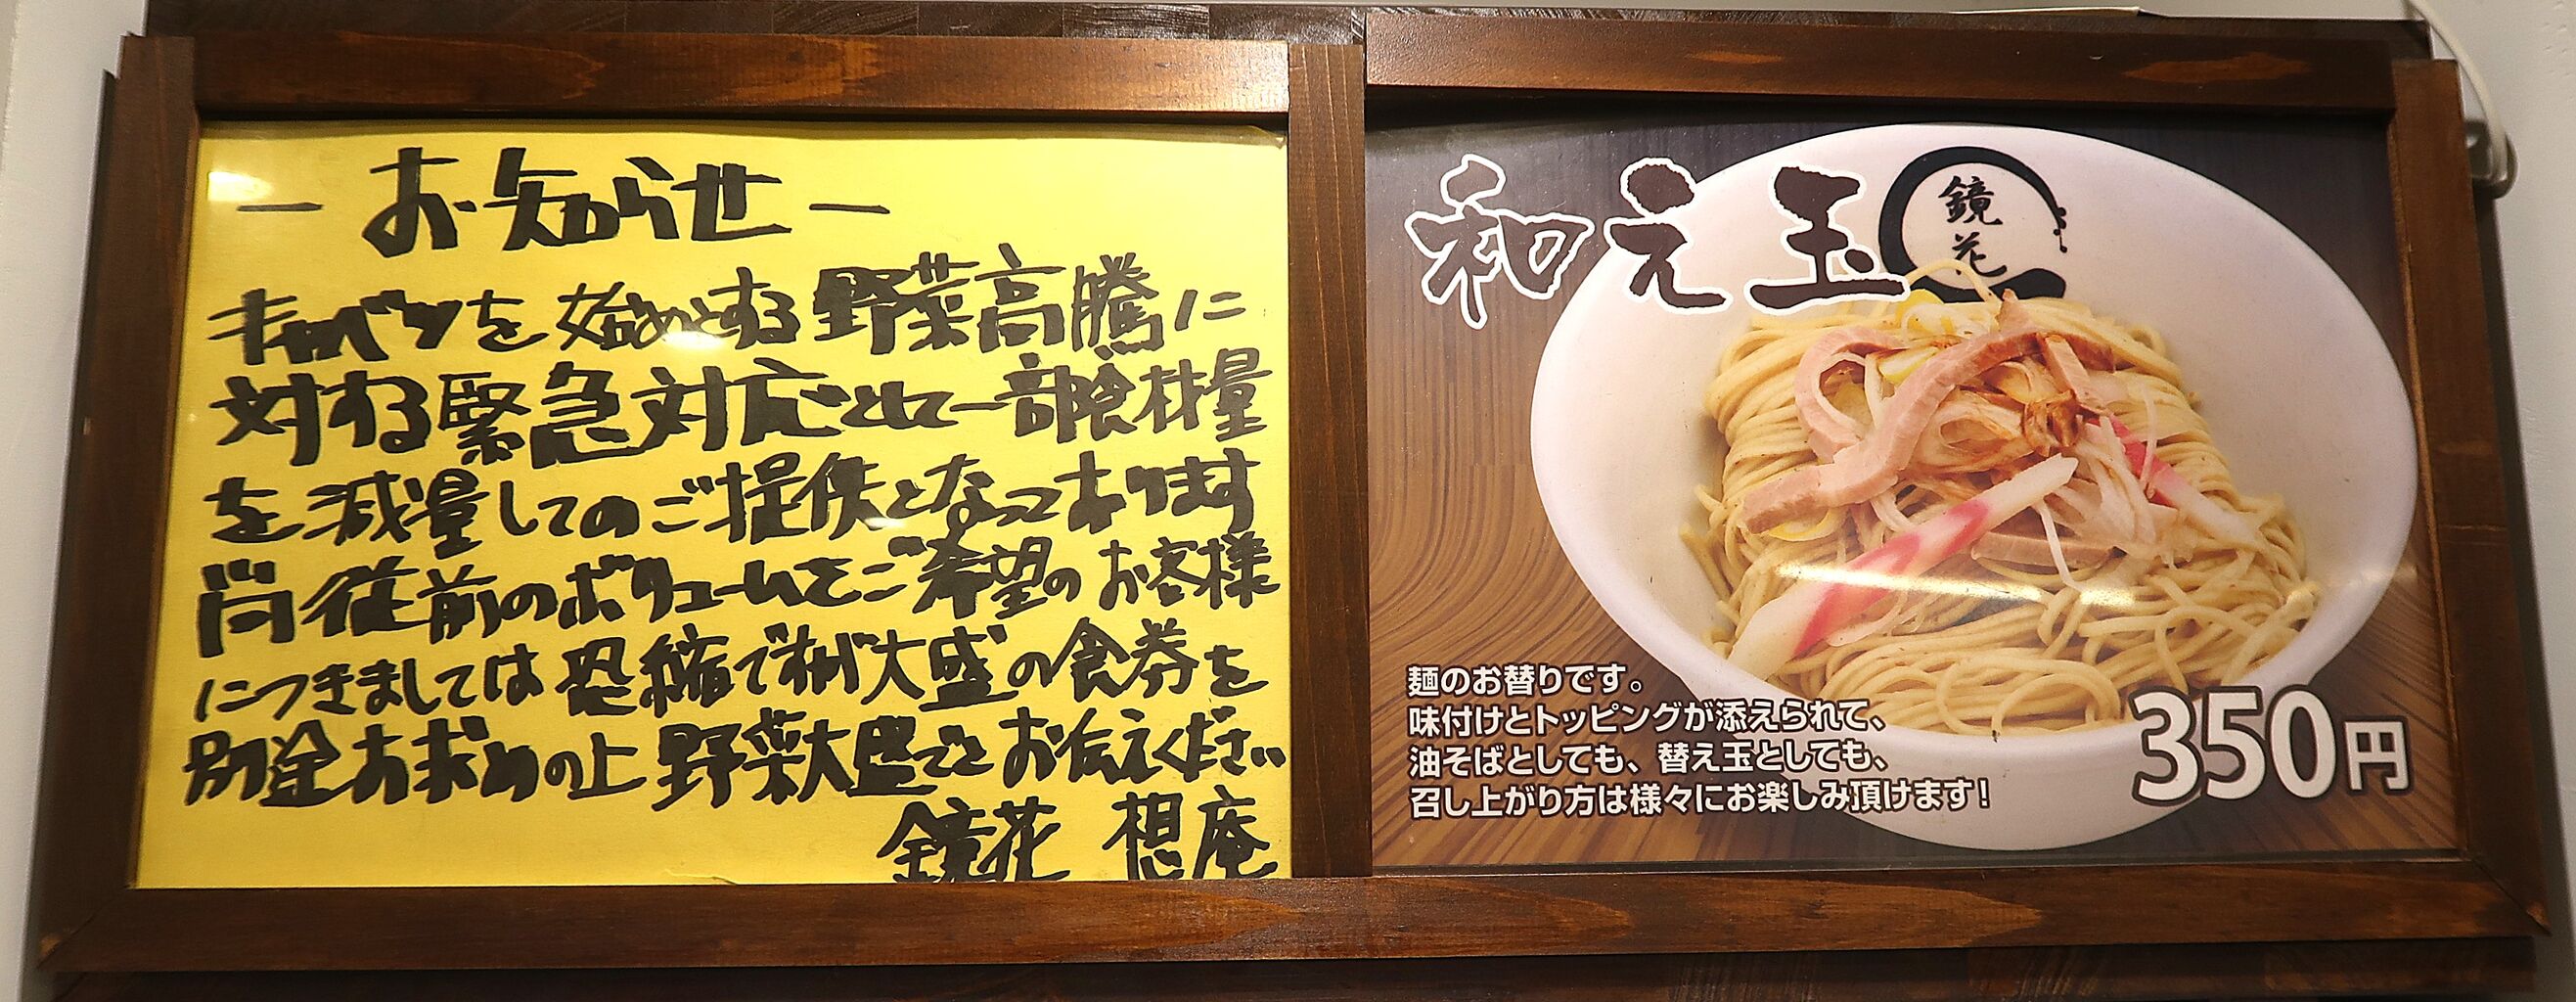 − お知らせ −
キャベツを始めとする野菜高騰に
対する緊急対応として一部食材量
を減量してのご提供となっております
尚従前のボリュームをご希望のお客様
につきましては恐縮ですが大盛の食券を
別途お求めの上野菜大盛でとお伝えください
鏡花 想庵
和え玉
鏡花
麺のお替りです。
味付けとトッピングが添えられて、
油そばとしても、替え玉としても、
召し上がり方は様々にお楽しみ頂けます!
350円